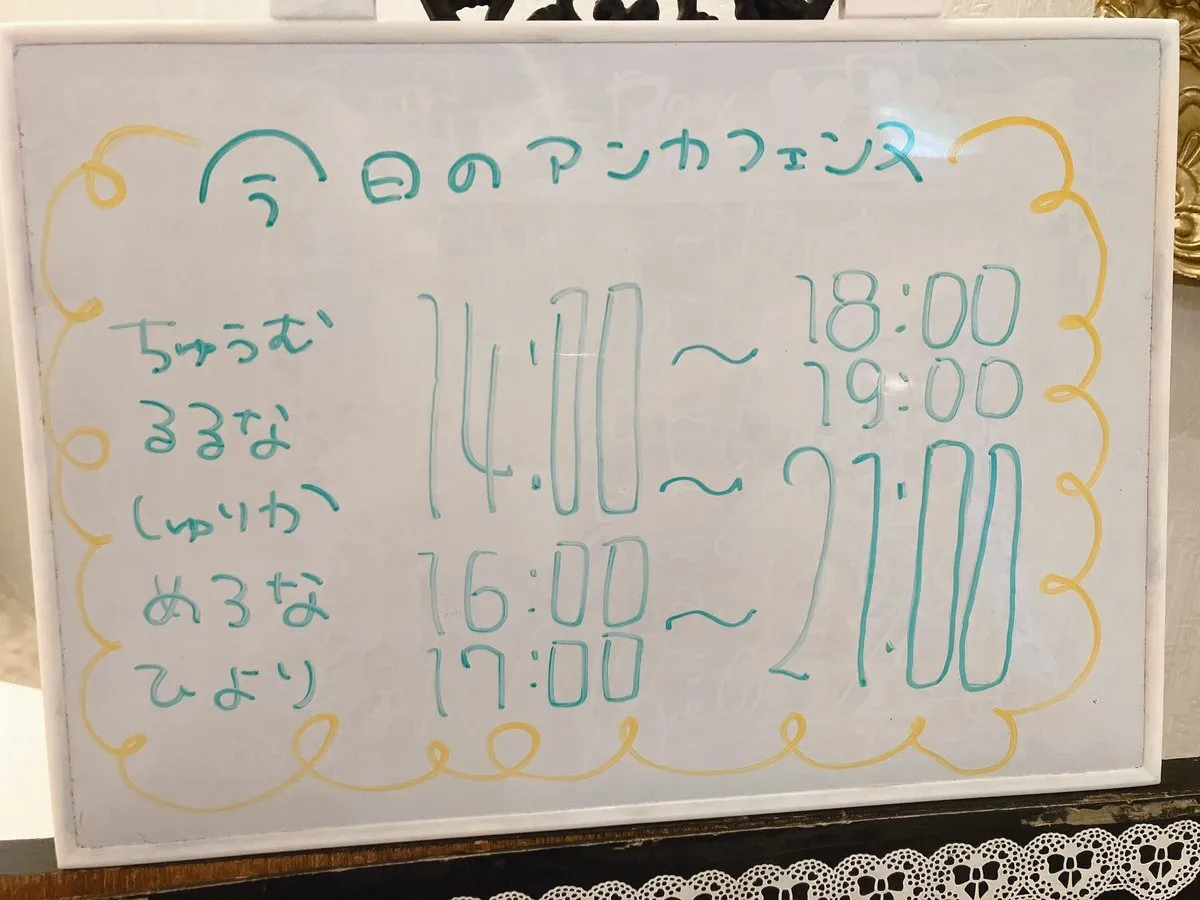 今日のアンカフェンヌ
ちゅうむ 14:00 〜 18:00
るるな 19:00
しゅりか 〜 21:00
めろな 16:00 〜
ひより 17:00